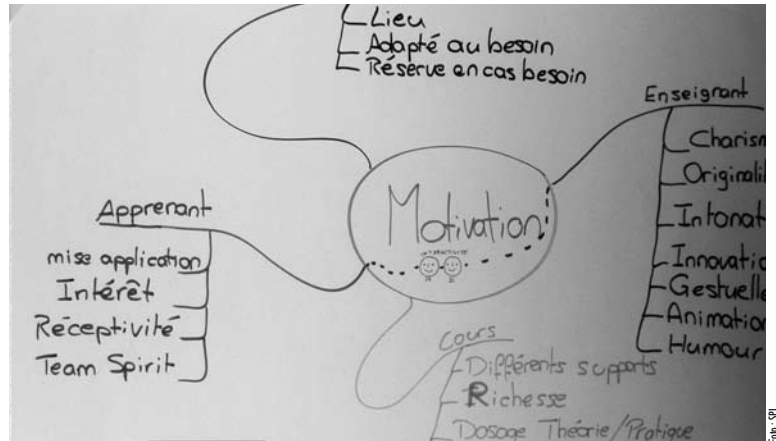 Lieu
Adapté au besoin
Réserve en cas besoin
Enseignant
Charism
Originali
Intonat
Innovatio
Gestuelle
Animation
Humour
Motivation
INTERACTIVITÉ
Apprenant
mise application
Intérêt
Réceptivité
Team Spirit
Cours
Différents supports
Richesse
Dosage Théorie/Pratique